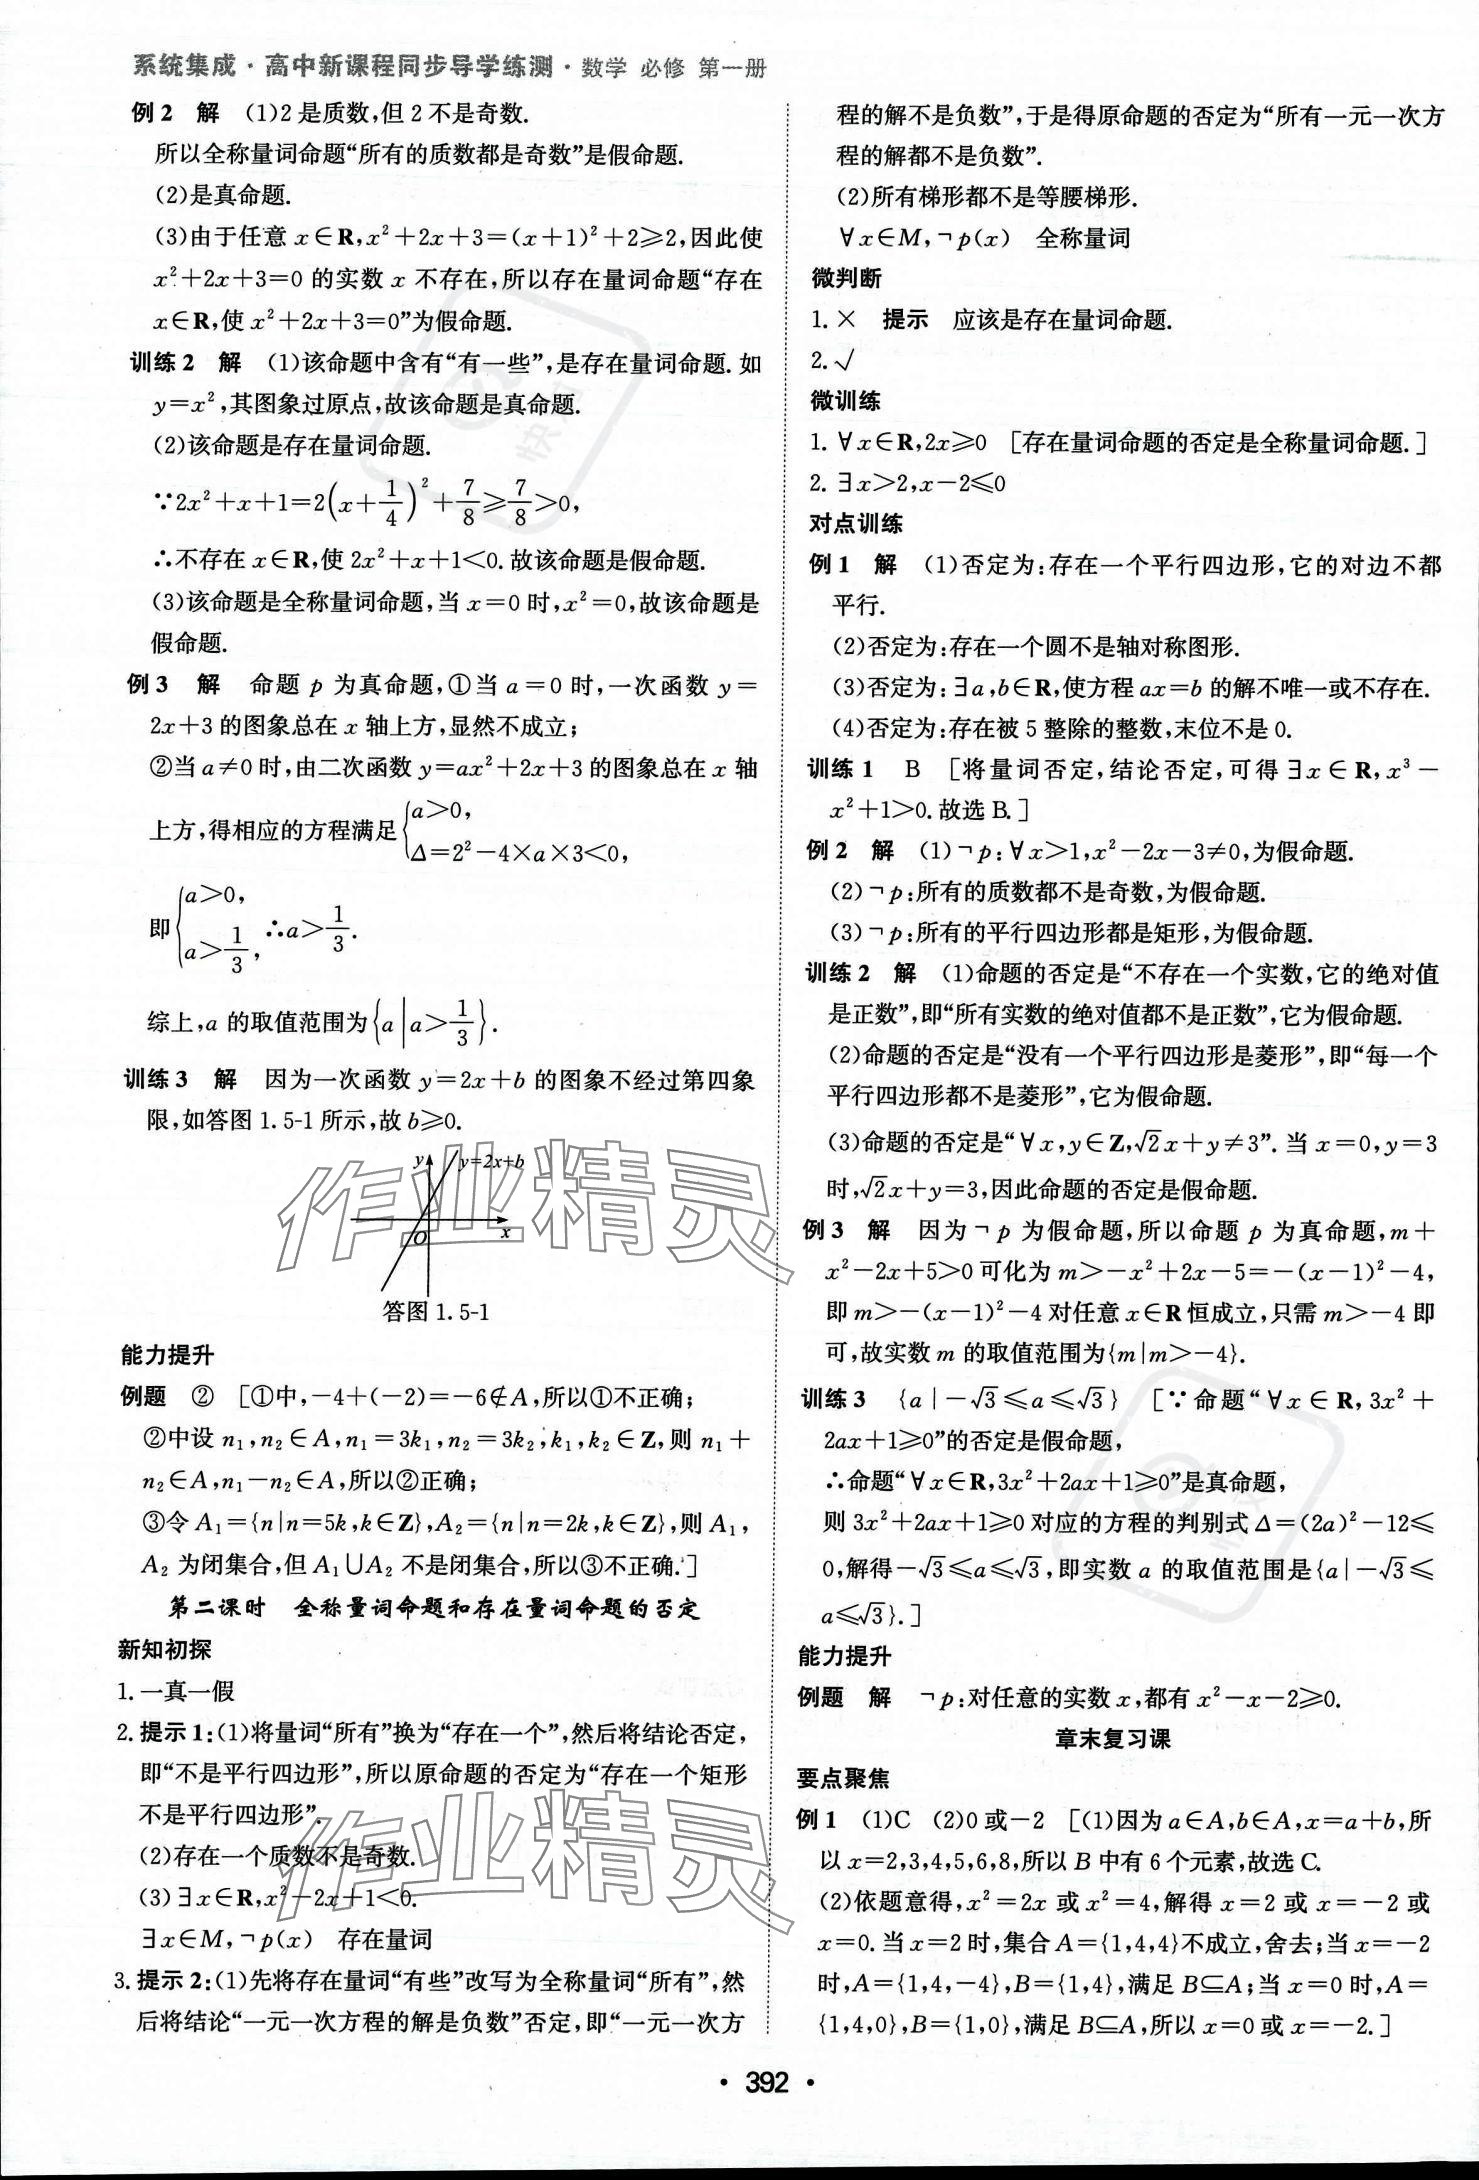 系统集成·高中新课程同步导学练测·数学 必修 第一册
例2 解 (1)2是质数,但2不是奇数.
所以全称量词命题“所有的质数都是奇数”是假命题.
(2)是真命题.
(3)由于任意 x∈R,x²+2x+3=(x+1)²+2≥2,因此使
x²+2x+3=0 的实数 x 不存在,所以存在量词命题“存在
x∈R,使 x²+2x+3=0”为假命题.
训练2 解 (1)该命题中含有“有一些”,是存在量词命题.如
y=x²,其图象过原点,故该命题是真命题.
(2)该命题是存在量词命题.
∵2x²+x+1=2(x+1/4)²+7/8≥7/8>0,
∴不存在 x∈R,使 2x²+x+1<0.故该命题是假命题.
(3)该命题是全称量词命题,当 x=0 时,x²=0,故该命题是
假命题.
例3 解 命题 p 为真命题,①当 a=0 时,一次函数 y=
2x+3 的图象总在 x 轴上方,显然不成立;
②当 a≠0 时,由二次函数 y=ax²+2x+3 的图象总在 x 轴
上方,得相应的方程满足{a>0,
Δ=2²-4×a×3<0,
即{a>0,
a>1/3, ∴a>1/3.
综上,a 的取值范围为{a|a>1/3}.
训练3 解 因为一次函数 y=2x+b 的图象不经过第四象
限,如答图 1.5-1 所示,故 b≥0.
y y=2x+b
O x
答图 1.5-1
能力提升
例题 ② [①中,-4+(-2)=-6∉A,所以①不正确;
②中设 n₁,n₂∈A,n₁=3k₁,n₂=3k₂,k₁,k₂∈Z,则 n₁+
n₂∈A,n₁-n₂∈A,所以②正确;
③令 A₁={n|n=5k,k∈Z},A₂={n|n=2k,k∈Z},则 A₁,
A₂ 为闭集合,但 A₁∪A₂ 不是闭集合,所以③不正确.]
第二课时 全称量词命题和存在量词命题的否定
新知初探
1.一真一假
2.提示1:(1)将量词“所有”换为“存在一个”,然后将结论否定,
即“不是平行四边形”,所以原命题的否定为“存在一个矩形
不是平行四边形”.
(2)存在一个质数不是奇数.
(3)∃x∈R,x²-2x+1<0.
∃x∈M,¬p(x) 存在量词
3.提示2:(1)先将存在量词“有些”改写为全称量词“所有”,然
后将结论“一元一次方程的解是负数”否定,即“一元一次方
程的解不是负数”,于是得原命题的否定为“所有一元一次方
程的解都不是负数”.
(2)所有梯形都不是等腰梯形.
∀x∈M,¬p(x) 全称量词
微判断
1.× 提示 应该是存在量词命题.
2.√
微训练
1.∀x∈R,2x≥0 [存在量词命题的否定是全称量词命题.]
2.∃x>2,x-2≤0
对点训练
例1 解 (1)否定为:存在一个平行四边形,它的对边不都
平行.
(2)否定为:存在一个圆不是轴对称图形.
(3)否定为:∃a,b∈R,使方程 ax=b 的解不唯一或不存在.
(4)否定为:存在被 5 整除的整数,末位不是 0.
训练1 B [将量词否定,结论否定,可得∃x∈R,x³-
x²+1>0.故选 B.]
例2 解 (1)¬p:∀x>1,x²-2x-3≠0,为假命题.
(2)¬p:所有的质数都不是奇数,为假命题.
(3)¬p:所有的平行四边形都是矩形,为假命题.
训练2 解 (1)命题的否定是“不存在一个实数,它的绝对值
是正数”,即“所有实数的绝对值都不是正数”,它为假命题.
(2)命题的否定是“没有一个平行四边形是菱形”,即“每一个
平行四边形都不是菱形”,它为假命题.
(3)命题的否定是“∀x,y∈Z,√2x+y≠3”.当 x=0,y=3
时,√2x+y=3,因此命题的否定是假命题.
例3 解 因为¬p 为假命题,所以命题 p 为真命题,m+
x²-2x+5>0 可化为 m>-x²+2x-5=-(x-1)²-4,
即 m>-(x-1)²-4 对任意 x∈R 恒成立,只需 m>-4 即
可,故实数 m 的取值范围为{m|m>-4}.
训练3 {a|-√3≤a≤√3} [∵命题“∀x∈R,3x²+
2ax+1≥0”的否定是假命题,
∴命题“∀x∈R,3x²+2ax+1≥0”是真命题,
则 3x²+2ax+1≥0 对应的方程的判别式 Δ=(2a)²-12≤
0,解得-√3≤a≤√3,即实数 a 的取值范围是{a|-√3≤
a≤√3}.]
能力提升
例题 解 ¬p:对任意的实数 x,都有 x²-x-2≥0.
章末复习课
要点聚焦
例1 (1)C (2)0或-2 [(1)因为 a∈A,b∈A,x=a+b,所
以 x=2,3,4,5,6,8,所以 B 中有 6 个元素,故选 C.
(2)依题意得,x²=2x 或 x²=4,解得 x=2 或 x=-2 或
x=0.当 x=2 时,集合 A={1,4,4}不成立,舍去;当 x=-2
时,A={1,4,-4},B={1,4},满足 B⊆A;当 x=0 时,A=
{1,4,0},B={1,0},满足 B⊆A,所以 x=0 或 x=-2.]
·392·
作业精灵
作业精灵